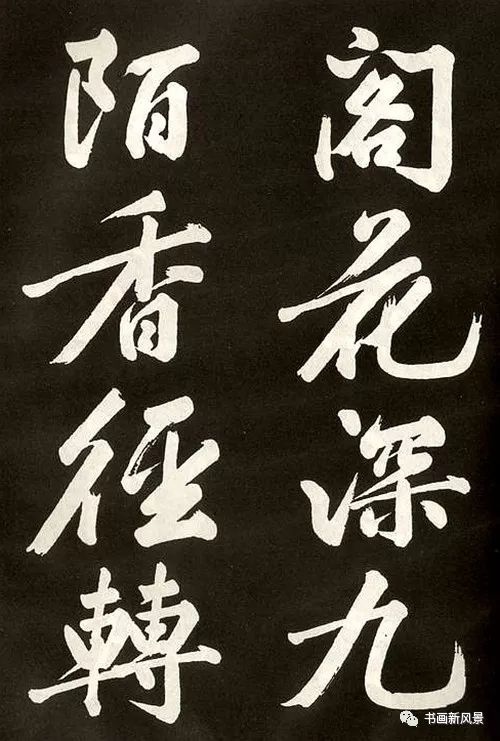 阁花深九
陌香径轉
书画新风景